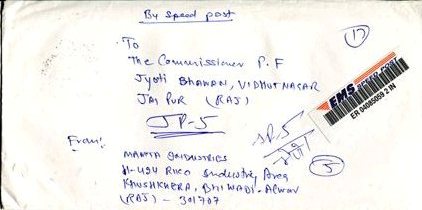 By Speed post
17
To
The Commissioner P.F
Jyoti BHAWAN, VIDHUTNAGAR
JAIPUR (RAJ)
JP-5
EMS SPEED POST
ER 04085059 2 IN
JP-5
5
From:
MAMTA INDUSTRIES
H-424 RIICO Industry Area
KHUSHKHERA, BHIWADI-Alwar
(RAJ) - 301707